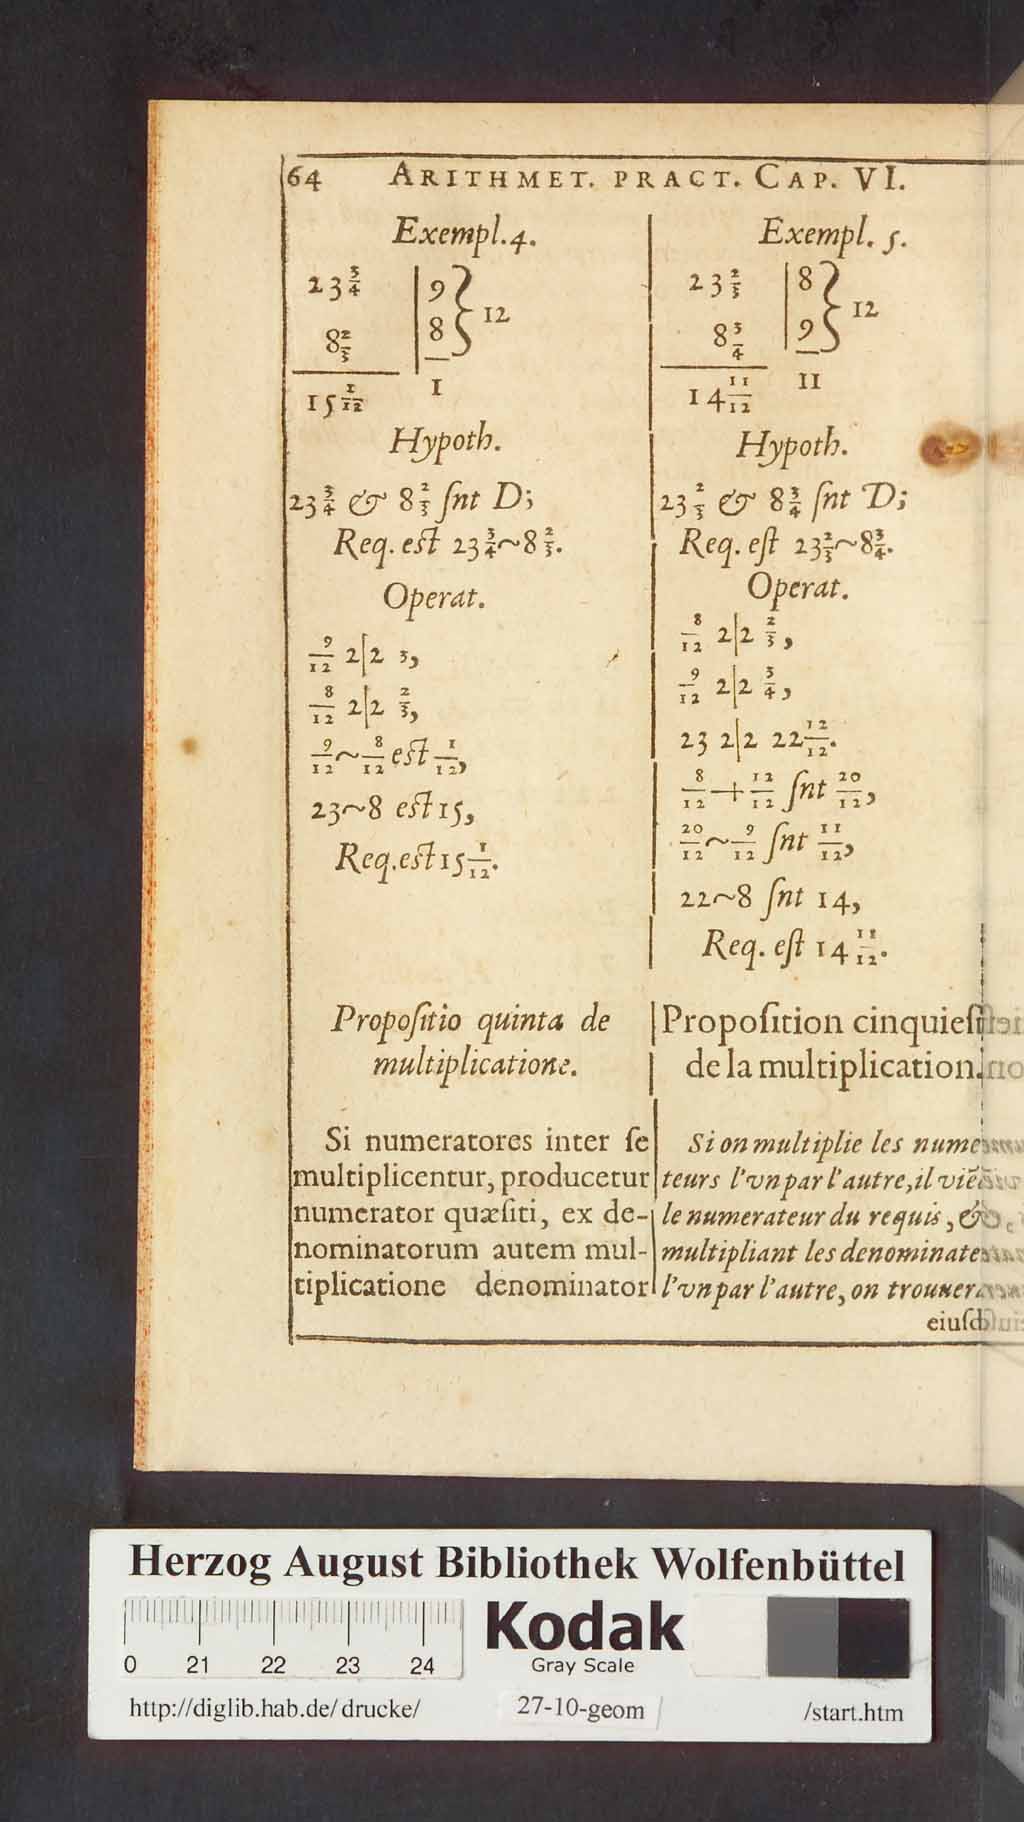 64 ARITHMET. PRACT. CAP. VI.
Exempl. 4.
23 3/4 | 9 } 12
8 2/3 | 8
15 1/12 1
Hypoth.
23 3/4 & 8 2/3 ſnt D;
Req. est 23 3/4 ~ 8 2/3.
Operat.
9/12 2|2 3,
8/12 2|2 2/3,
9/12 ~ 8/12 est 1/12,
23 ~ 8 est 15,
Req. est 15 1/12.
Exempl. 5.
23 2/3 | 8 } 12
8 3/4 | 9
14 11/12 11
Hypoth.
23 2/3 & 8 3/4 ſnt D;
Req. eſt 23 2/3 ~ 8 3/4.
Operat.
8/12 2|2 2/3,
9/12 2|2 3/4,
23 2|2 22 12/12.
8/12 + 12/12 ſnt 20/12,
20/12 ~ 9/12 ſnt 11/12,
22 ~ 8 ſnt 14,
Req. eſt 14 11/12.
Propoſitio quinta de
multiplicatione.
Si numeratores inter ſe
multiplicentur, producetur
numerator quæſiti, ex de-
nominatorum autem mul-
tiplicatione denominator
Propoſition cinquieſ
de la multiplication.
Si on multiplie les nume
teurs l'vn par l'autre, il viẽ
le numerateur du requis, &
multipliant les denominate
l'vn par l'autre, on trouuer
eiuſd
Herzog August Bibliothek Wolfenbüttel
0 21 22 23 24
Kodak
Gray Scale
http://diglib.hab.de/drucke/ 27-10-geom /start.htm